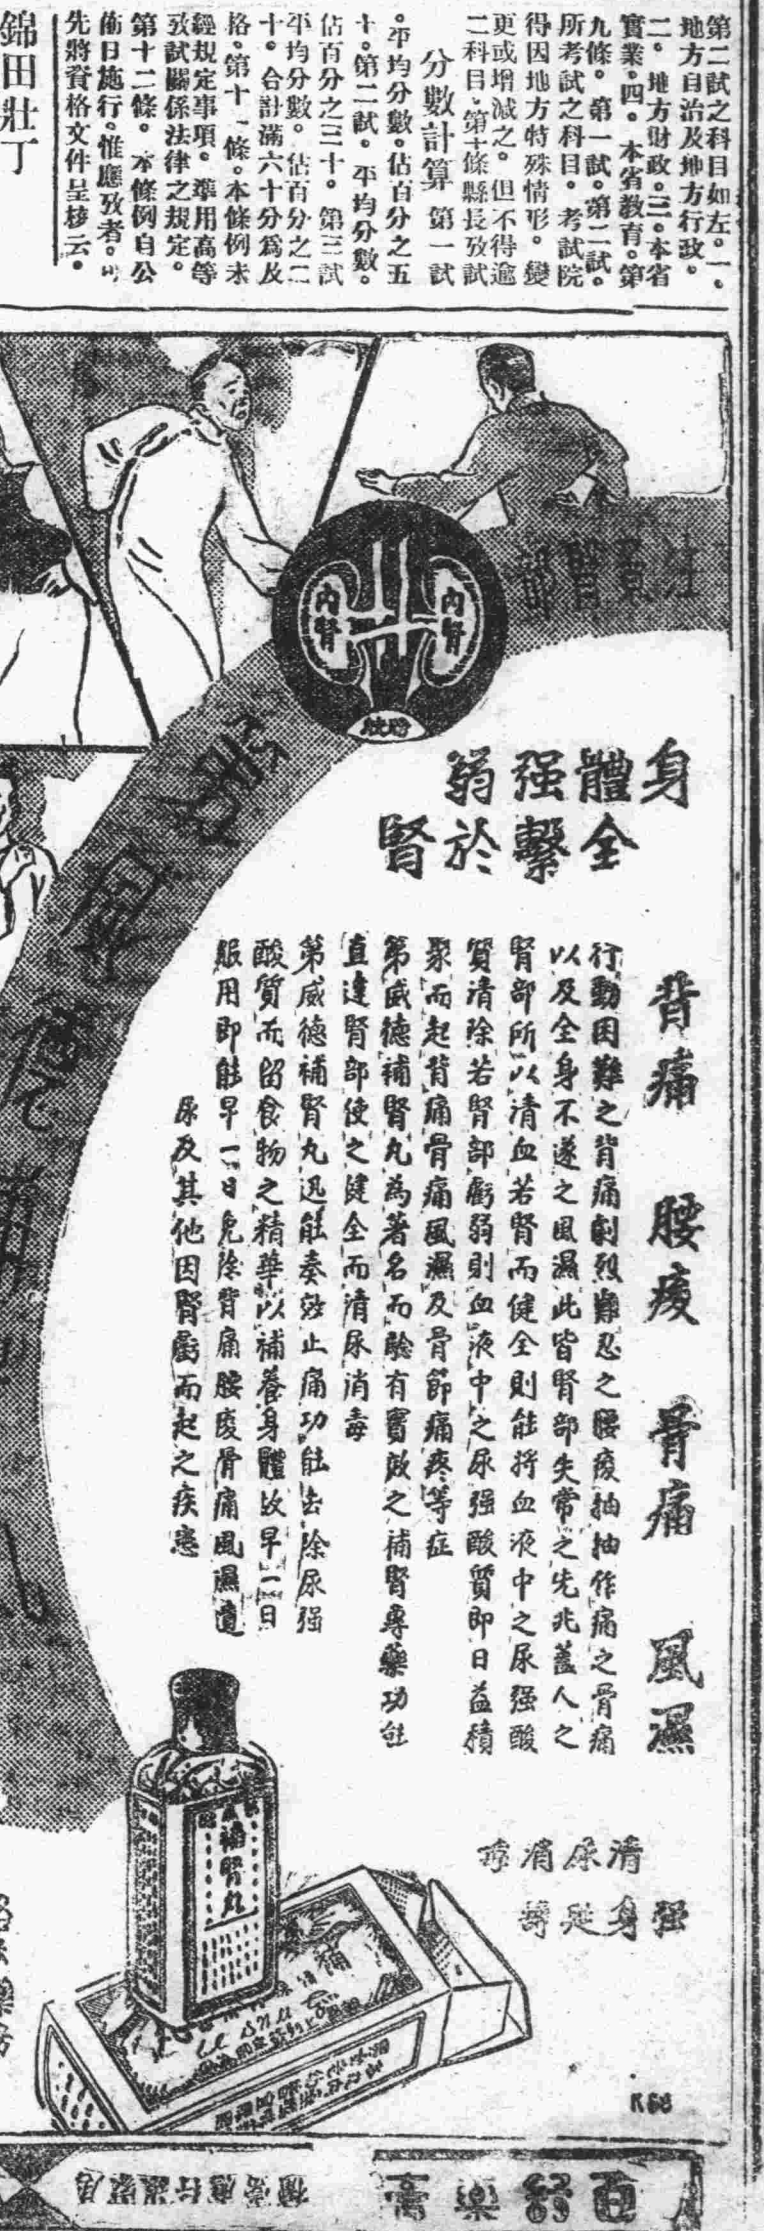 第二試之科目如左。一。
地方自治及地方行政。
二。地方財政。三。本省
實業。四。本省教育。第
九條。第一試。第二試。
所考試之科目。考試院
得因地方特殊情形。變
更或增減之。但不得逾
二科目。第十條縣長攷試
分數計算 第一試
。平均分數。佔百分之五
十。第二試。平均分數。
佔百分之三十。第三試
平均分數。佔百分之二
十。合計滿六十分爲及
格。第十一條。本條例未
經規定事項。準用高等
攷試關係法律之規定。
第十二條。本條例自公
佈日施行。惟應攷者。
先將資格文件呈核云。
錦田壯丁
注意腎部
內腎
內腎
膀胱
身體强弱
全繫於腎
背痛 腰痠 骨痛 風濕
行動困難之背痛劇烈難忍之腰痠抽抽作痛之骨痛
以及全身不遂之風濕此皆腎部失常之先兆蓋人之
腎部所以清血若腎而健全則能將血液中之尿强酸
質清除若腎部虧弱則血液中之尿强酸質即日益積
聚而起背痛骨痛風濕及骨節痛疼等症
第威德補腎丸為著名而驗有實效之補腎專藥功能
直達腎部使之健全而清尿消毒
第威德補腎丸迅能奏效止痛功能去除尿强
酸質而留食物之精華以補養身體故早一日
服用即能早一日免除背痛腰痠骨痛風濕遺
尿及其他因腎虧而起之疾患
清尿消毒
强身延壽
補腎丸
K68